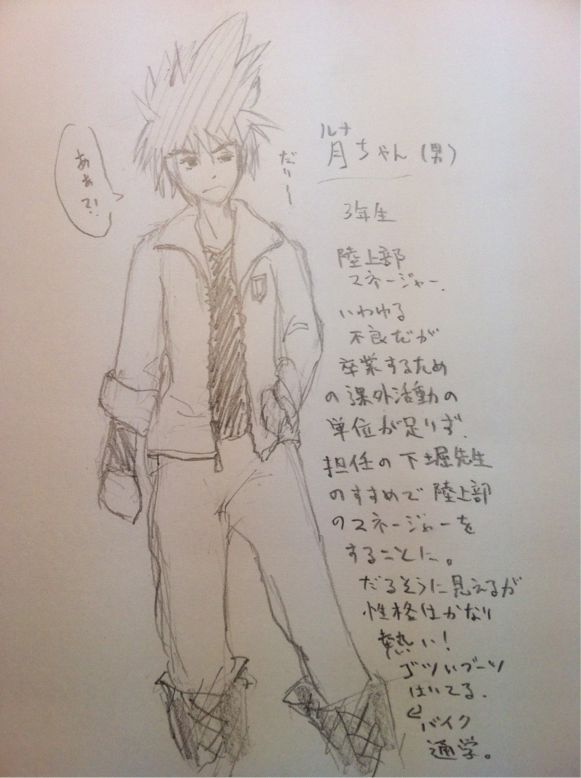 ルナ
月ちゃん(男)
3年生
陸上部
マネージャー.
いわゆる
不良だが
卒業するため
の課外活動の
単位が足りず、
担任の下堀先生
のすすめで陸上部
のマネージャーを
することに。
だるそうに見えるが
性格はかなり
熱い!
ゴツいブーツ
はいてる.
バイク
通学。
あぁで!
だりー